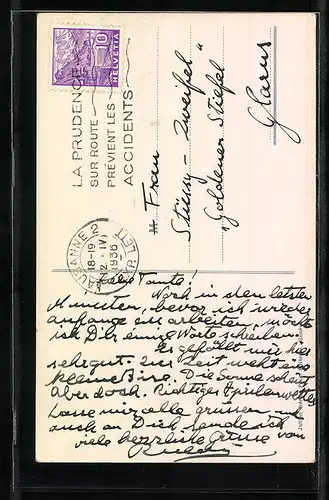 10
HELVETIA
LA PRUDENCE
SUR ROUTE
PRÉVIENT LES
ACCIDENTS
LAUSANNE 2
18-19
12.IV
1936
EXP. LETT.
Frau
Stüssy-Zweifel
"Goldener Stiefel"
Glarus
Liebe Tante!
Noch in den letzten
Minuten, bevor ich wieder
anfange zu arbeiten, möcht
ich Dir einige Worte schreiben.
Es gefällt mir hier
sehr gut. Zur Zeit weht eine
kleine Bise. Die Sonne scheint
aber doch. Richtiges Aprilenwetter
Lasse mir alle grüssen und
auch an Dich sende ich
viele herzliche Grüsse von